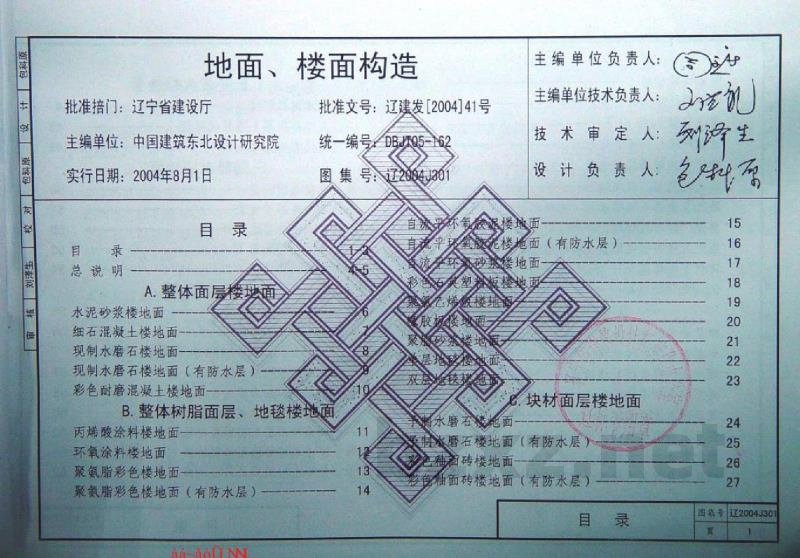 地面、楼面构造
批准掊门：辽宁省建设厅 批准文号：辽建发[2004]41号
主编单位：中国建筑东北设计研究院 统一编号：DBJT05-162
实行日期：2004年8月1日 图 集 号：辽2004J301
主编单位负责人：
主编单位技术负责人：
技 术 审 定 人：刘泽生
设 计 负 责 人：包科原
包科原
设 计
包科原
校 对
刘泽生
审 核
目 录
目 录 1-3
总 说 明 4-5
A.整体面层楼地面
水泥砂浆楼地面 6
细石混凝土楼地面 7
现制水磨石楼地面 8
现制水磨石楼地面（有防水层） 9
彩色耐磨混凝土楼地面 10
B.整体树脂面层、地毯楼地面
丙烯酸涂料楼地面 11
环氧涂料楼地面 12
聚氨脂彩色楼地面 13
聚氨脂彩色楼地面（有防水层） 14
自流平环氧胶泥楼地面 15
自流平环氧胶泥楼地面（有防水层） 16
自流平环氧砂浆楼地面 17
彩色石英塑料板楼地面 18
聚氯乙烯板楼地面 19
橡胶板楼地面 20
聚脂砂浆楼地面 21
单层地毯楼地面 22
双层地毯楼地面 23
C.块材面层楼地面
予制水磨石楼地面 24
予制水磨石楼地面（有防水层） 25
彩色釉面砖楼地面 26
彩色釉面砖楼地面（有防水层） 27
目 录
图集号 辽2004J301
页 1